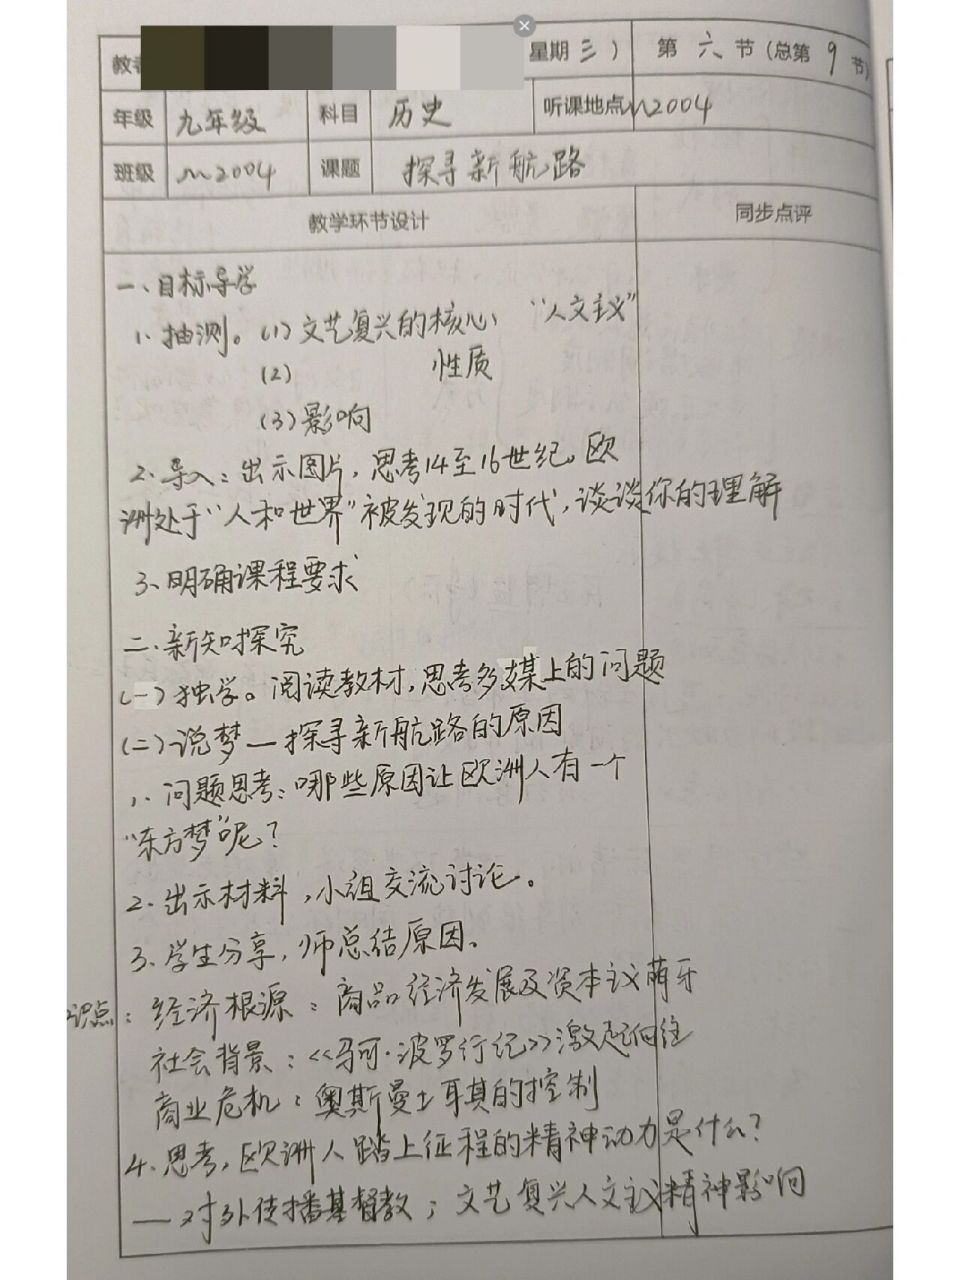 教 星期三） 第六节（总第9节）
年级 九年级 科目 历史 听课地点 m2004
班级 m2004 课题 探寻新航路
教学环节设计 同步点评
一、目标导学
1、抽测。(1)文艺复兴的核心 “人文主义”
(2) 性质
(3)影响
2、导入：出示图片，思考14至16世纪，欧
洲处于“人和世界”被发现的时代，谈谈你的理解
3、明确课程要求
二、新知探究
(一)独学。阅读教材，思考多媒上的问题
(二)说梦—探寻新航路的原因
1、问题思考：哪些原因让欧洲人有一个
“东方梦”呢？
2、出示材料，小组交流讨论。
3、学生分享，师总结原因。
识点：经济根源：商品经济发展及资本主义萌牙
社会背景：《马可·波罗行纪》激起向往
商业危机：奥斯曼土耳其的控制
4、思考，欧洲人踏上征程的精神动力是什么？
—对外传播基督教；文艺复兴人文主义精神影响